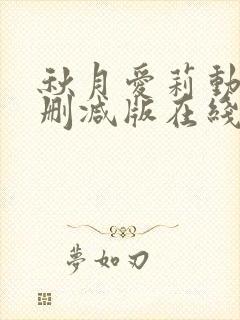 秋月愛莉動
刪減版在綫
夢如刃